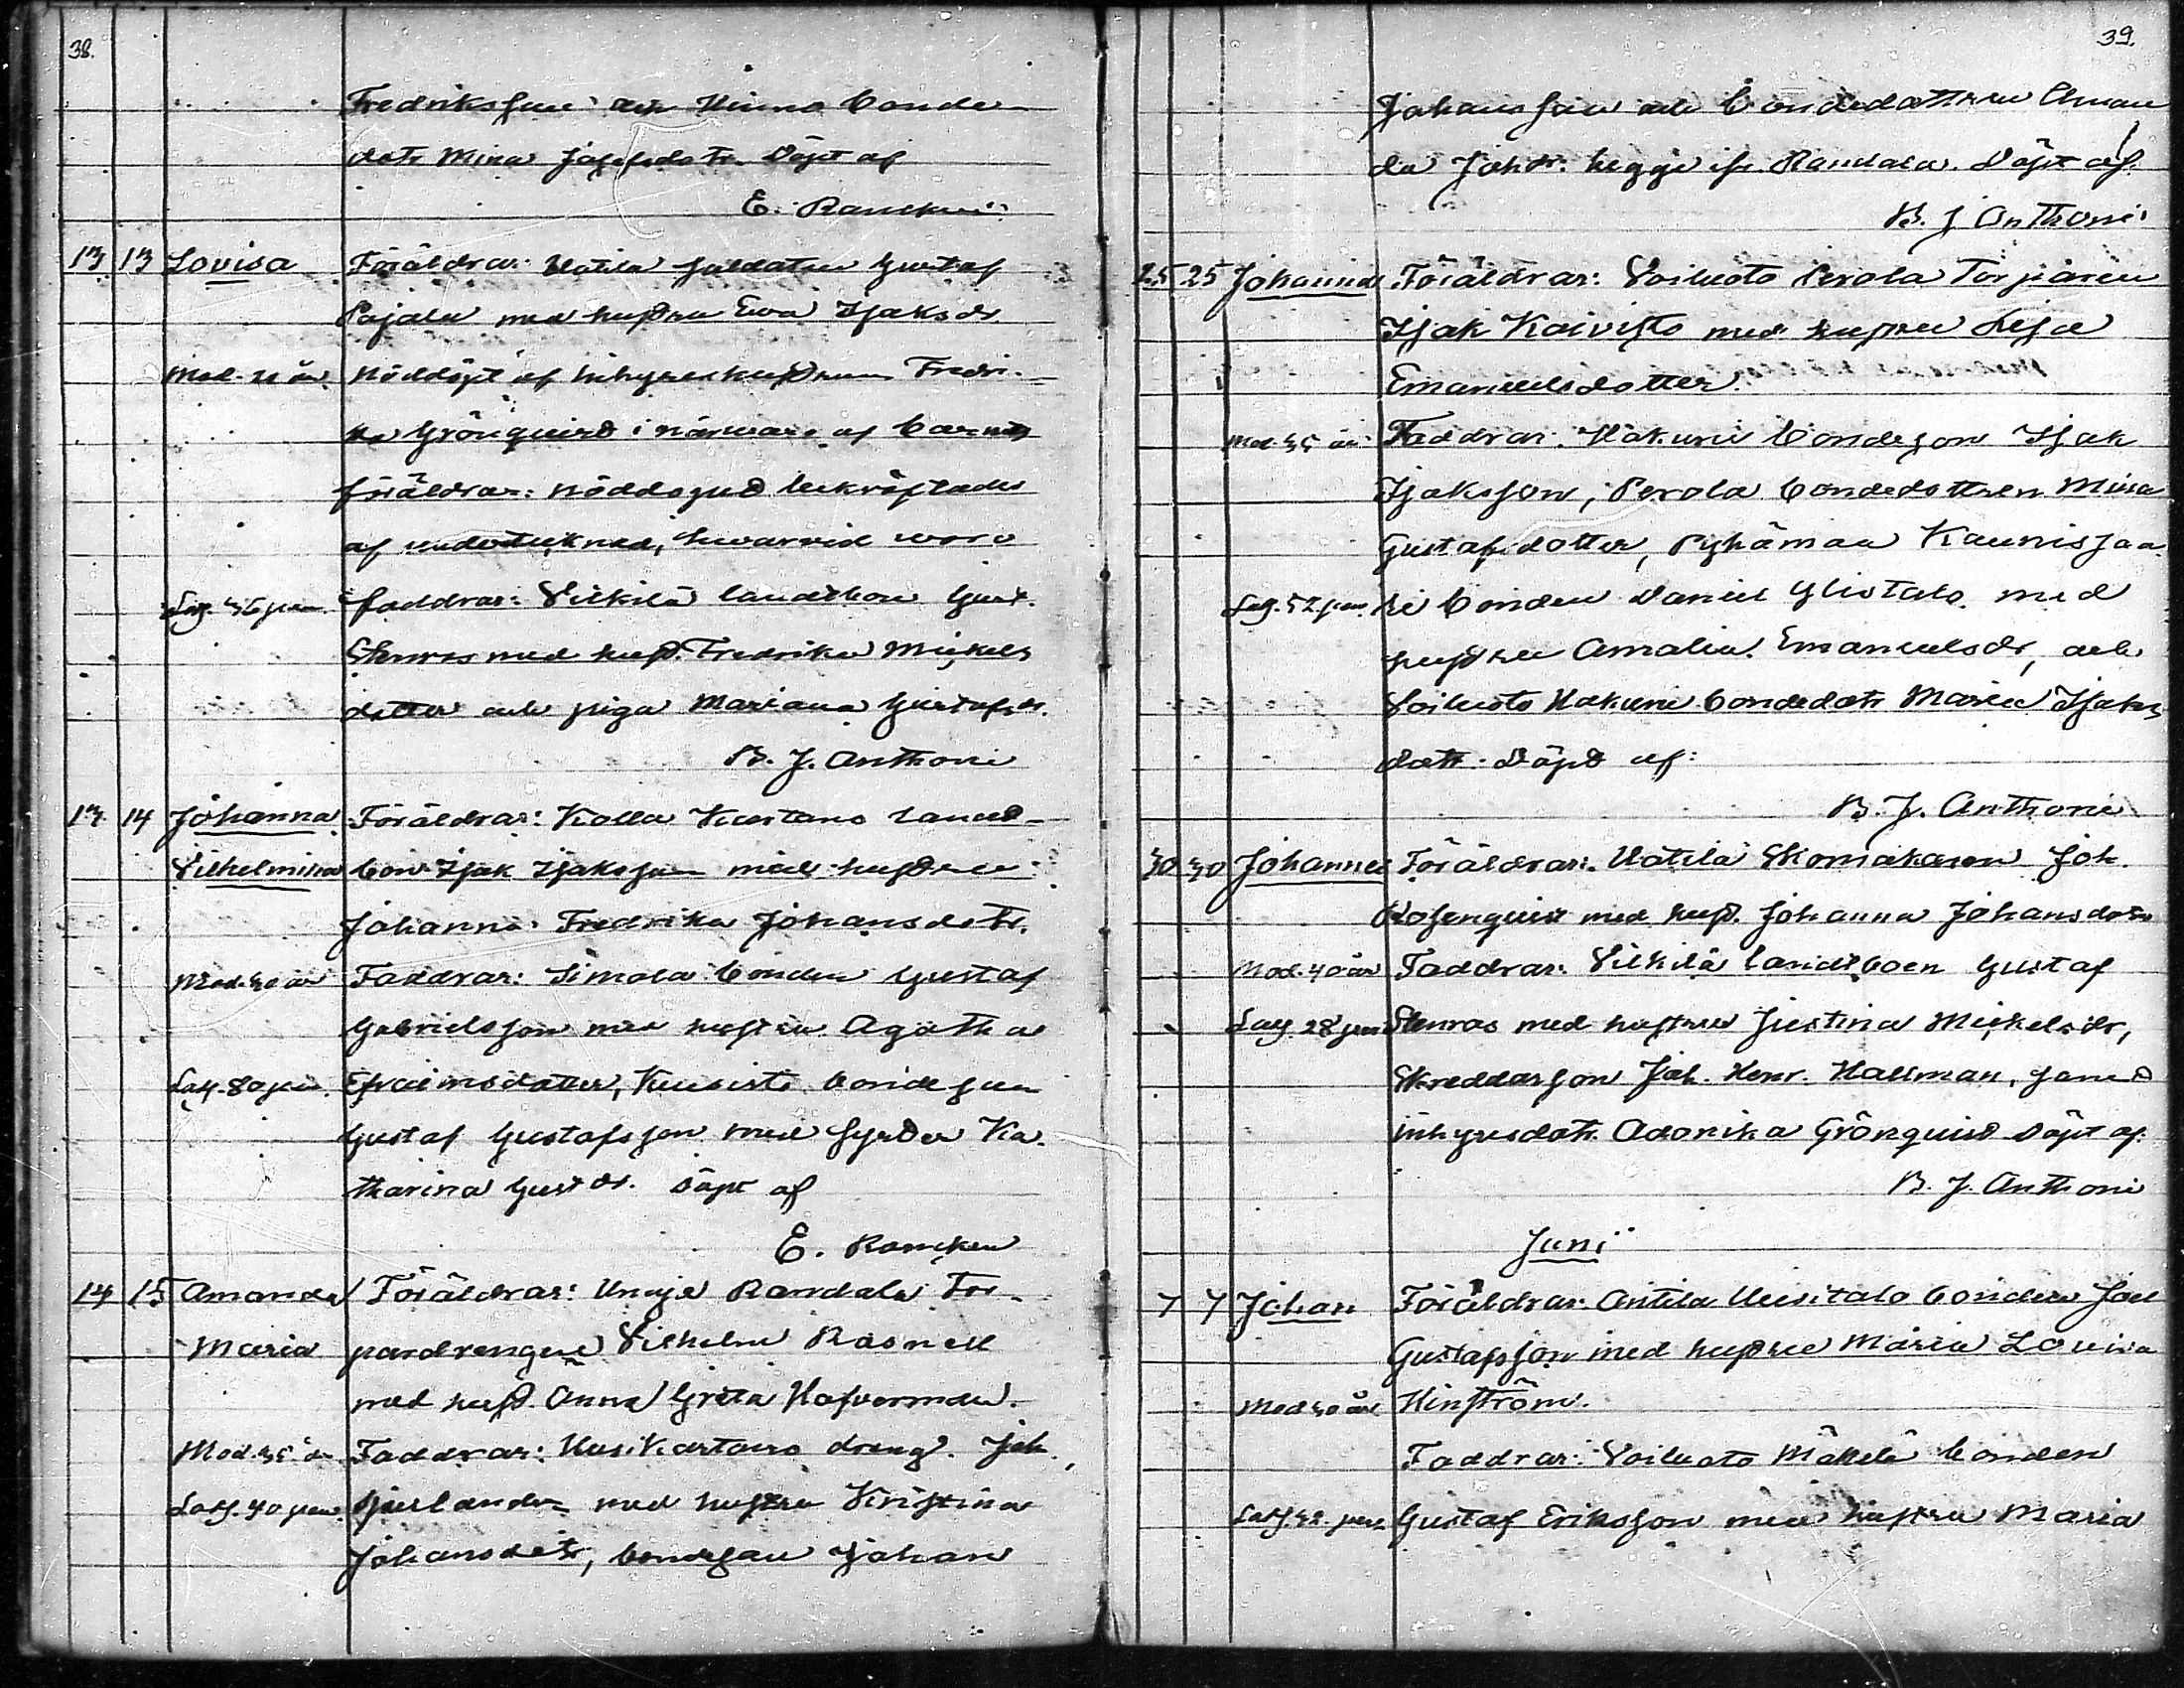 38.
Fredriksson och Hinno bonde
dotr Mina Josefsdotr. Döpt af
E. Rancken
13 13 Lovisa Föräldrar: Uotila soldaten Gustaf
Pajala med hustru Eva Isaksdr.
Mod. år. Nöddöpt af inhyseshustrun Fredri-
ka Grönquist i närwaro af barnets
föräldrar: nöddopet bekräftades
af undertecknad, hwarvid woro
Lag. 36 faddrar: Vilkilä landtbon Gust.
Stenros med hust. Fredrika Mickels
dotter och piga Mariana Gustafsdr.
B. J. Anthoni
13 14 Johanna Föräldrar: Kolla Kartano Landt-
Vilhelmina bon Isak Isaksson med hustru
Johanna Fredrika Johansdotr.
Mod. 40 år Faddrar: Simola bonden Gustaf
Gabrielsson med hustru Agatha
Lag. 80 Efraimsdotter, Kuusisto bondeson
Gustaf Gustafsson med syster Ka-
tharina Gustdr. Döpt af
E. Rancken
14 15 Amanda Föräldrar: Unaja Randala Tor-
Maria pardrengen Vilhelm Rosnell
med hust. Anna Greta
Mod. 35 år Faddrar: Uusikartano dreng. Joh.
Lag. 40 med hustru Kristina
Johansdotr, bondeson Johan
39.
Johansson och bondedottren Aman
da Johdr. begge ifr. Randala. Döpt af
B. J Anthoni
25 25 Johanna Föräldrar: Voiluoto Perola Torparen
Isak Koivisto med hustru Lisa
Emanuelsdotter.
Mod. 35 år Faddrar: Hakuni bondeson Isak
Isaksson, Perola bondedottren Mina
Gustafsdotter, Pyhämaa Kaunissaa
Lag. 52 ri bonden Daniel Ylistalo med
hustru Amalia Emanuelsdr, och
Voiluoto Hakuni bondedotr Maria Isaks
dott. Döpt af:
B. J. Anthoni
30 30 Johannes Föräldrar: Uotila Skomakaren Joh.
Rosenquist med hust. Johanna Johansdotr
Mod. 40 år Faddrar: Vilkilä landtboen Gustaf
Lag. 28 Stenros med hustru Justina Mickelsdr,
Skreddarson Joh. Henr. Hallman, samt
inhysesdotr. Adorika Grönquist Döpt af:
B. J. Anthoni
Juni
7 7 Johan Föräldrar: Antila Uusitalo bonden Joel
Gustafsson med hustru Maria Lovisa
Mod 40 år Hinström.
Faddrar: Voiluoto Mäkelä bonden
Lag. 42 Gustaf Eriksson med hustru Maria